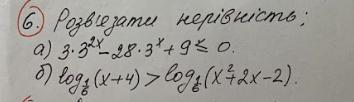 6. Розв'язати нерівність;
а) 3·3²ˣ-28·3ˣ+9≤0.
б) log_{1/6}(x+4)>log_{1/6}(x²+2x-2).